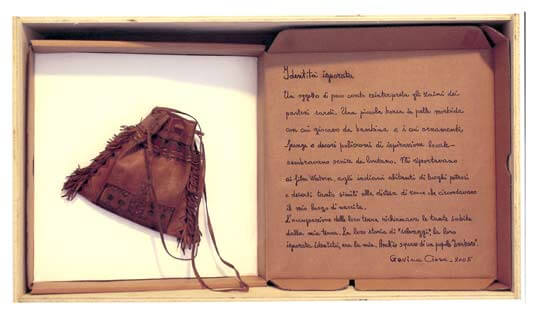 Identità ignorata
Un oggetto di poco conto reinterpreta gli zaini dei
pastori sardi. Una piccola borsa in pelle morbida
con cui giocavo da bambina e i cui ornamenti,
frange e decori policromi di ispirazione locale
sembravano venire da lontano. Mi riportavano
ai film Western, agli indiani abitanti di luoghi petrosi
e deserti tanto simili alla distesa di rocce che circondavano
il mio luogo di nascita.
L'occupazione delle loro terre richiamava le tante subite
dalla mia terra. La loro storia di "selvaggi", la loro
ignorata identità, era la mia. Anch'io squaw di un popolo "barbaro".
Gavina Ciusa - 2005